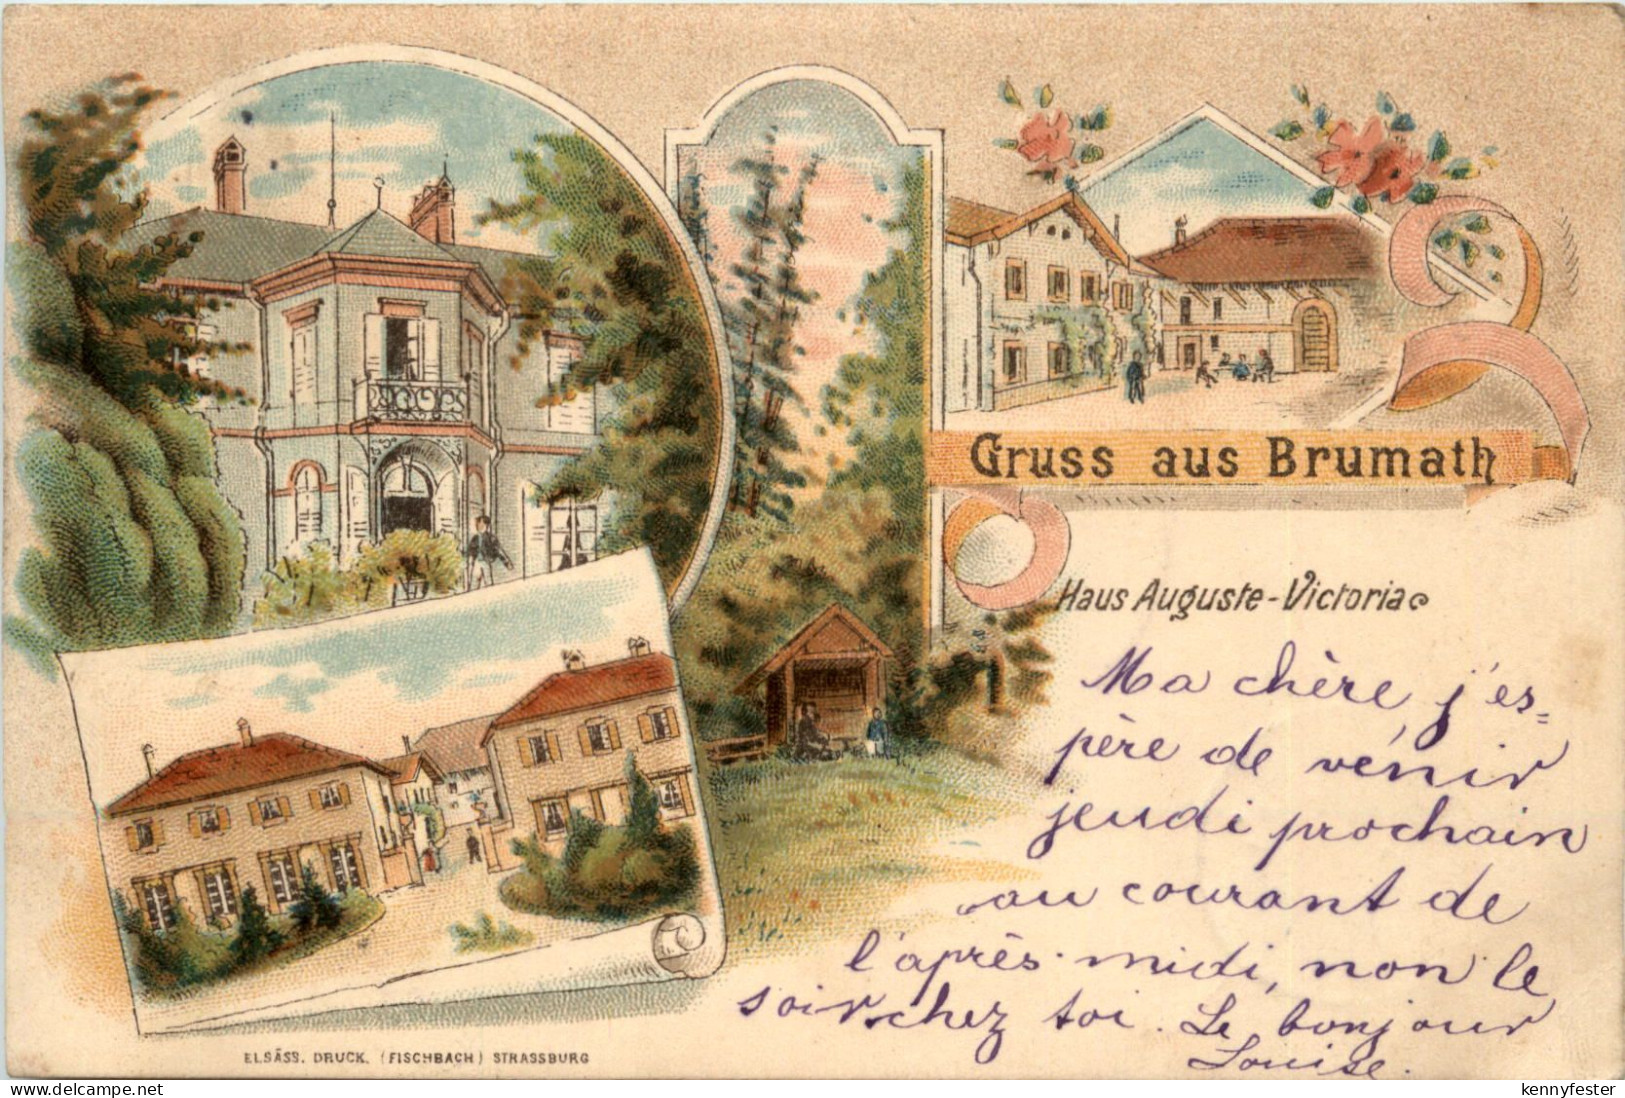 Gruss aus Brumath
Haus Auguste-Victoria
Ma chère, j'es=
père de vénir
jeudi prochain
au courant de
l'après-midi, non le
soir, chez toi. Le bonjour
Louise.
ELSÄSS. DRUCK. (FISCHBACH) STRASSBURG
delcampe.net
kennyfester